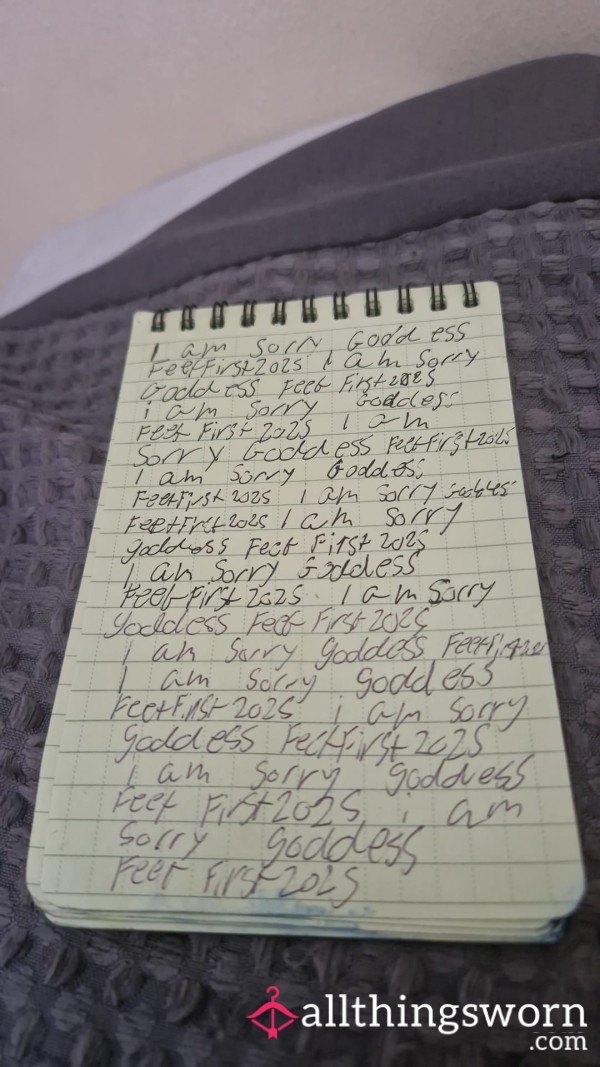 I am Sorry Goddess
FeetFirst2025 I am Sorry
Goddess Feet First2025
i am Sorry Goddess
Feet First 2025 I am
Sorry Goddess FeetFirst2025
I am Sorry Goddess
FeetFirst 2025 I am Sorry Goddess
FeetFirst 2025 I am Sorry
goddess Feet First 2025
I am Sorry Goddess
FeetFirst 2025. I am Sorry
goddess Feet First 2025
I am Sorry goddess
I am Sorry goddess
FeetFirst 2025 i am Sorry
goddess FeetFirst 2025
i am Sorry goddess
Feet First2025 i am
Sorry goddess
Feet First2025
allthingsworn
.com